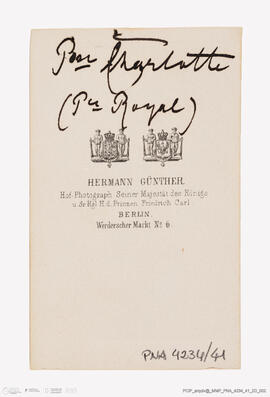 Pss Charlotte
(Pss Royal)
HERMANN GÜNTHER.
Hof-Photograph Seiner Majestät des Königs
u. Sr Kgl. H. d. Prinzen Friedrich Carl.
BERLIN.
Werderscher Markt No 6.
PNA 4234/41